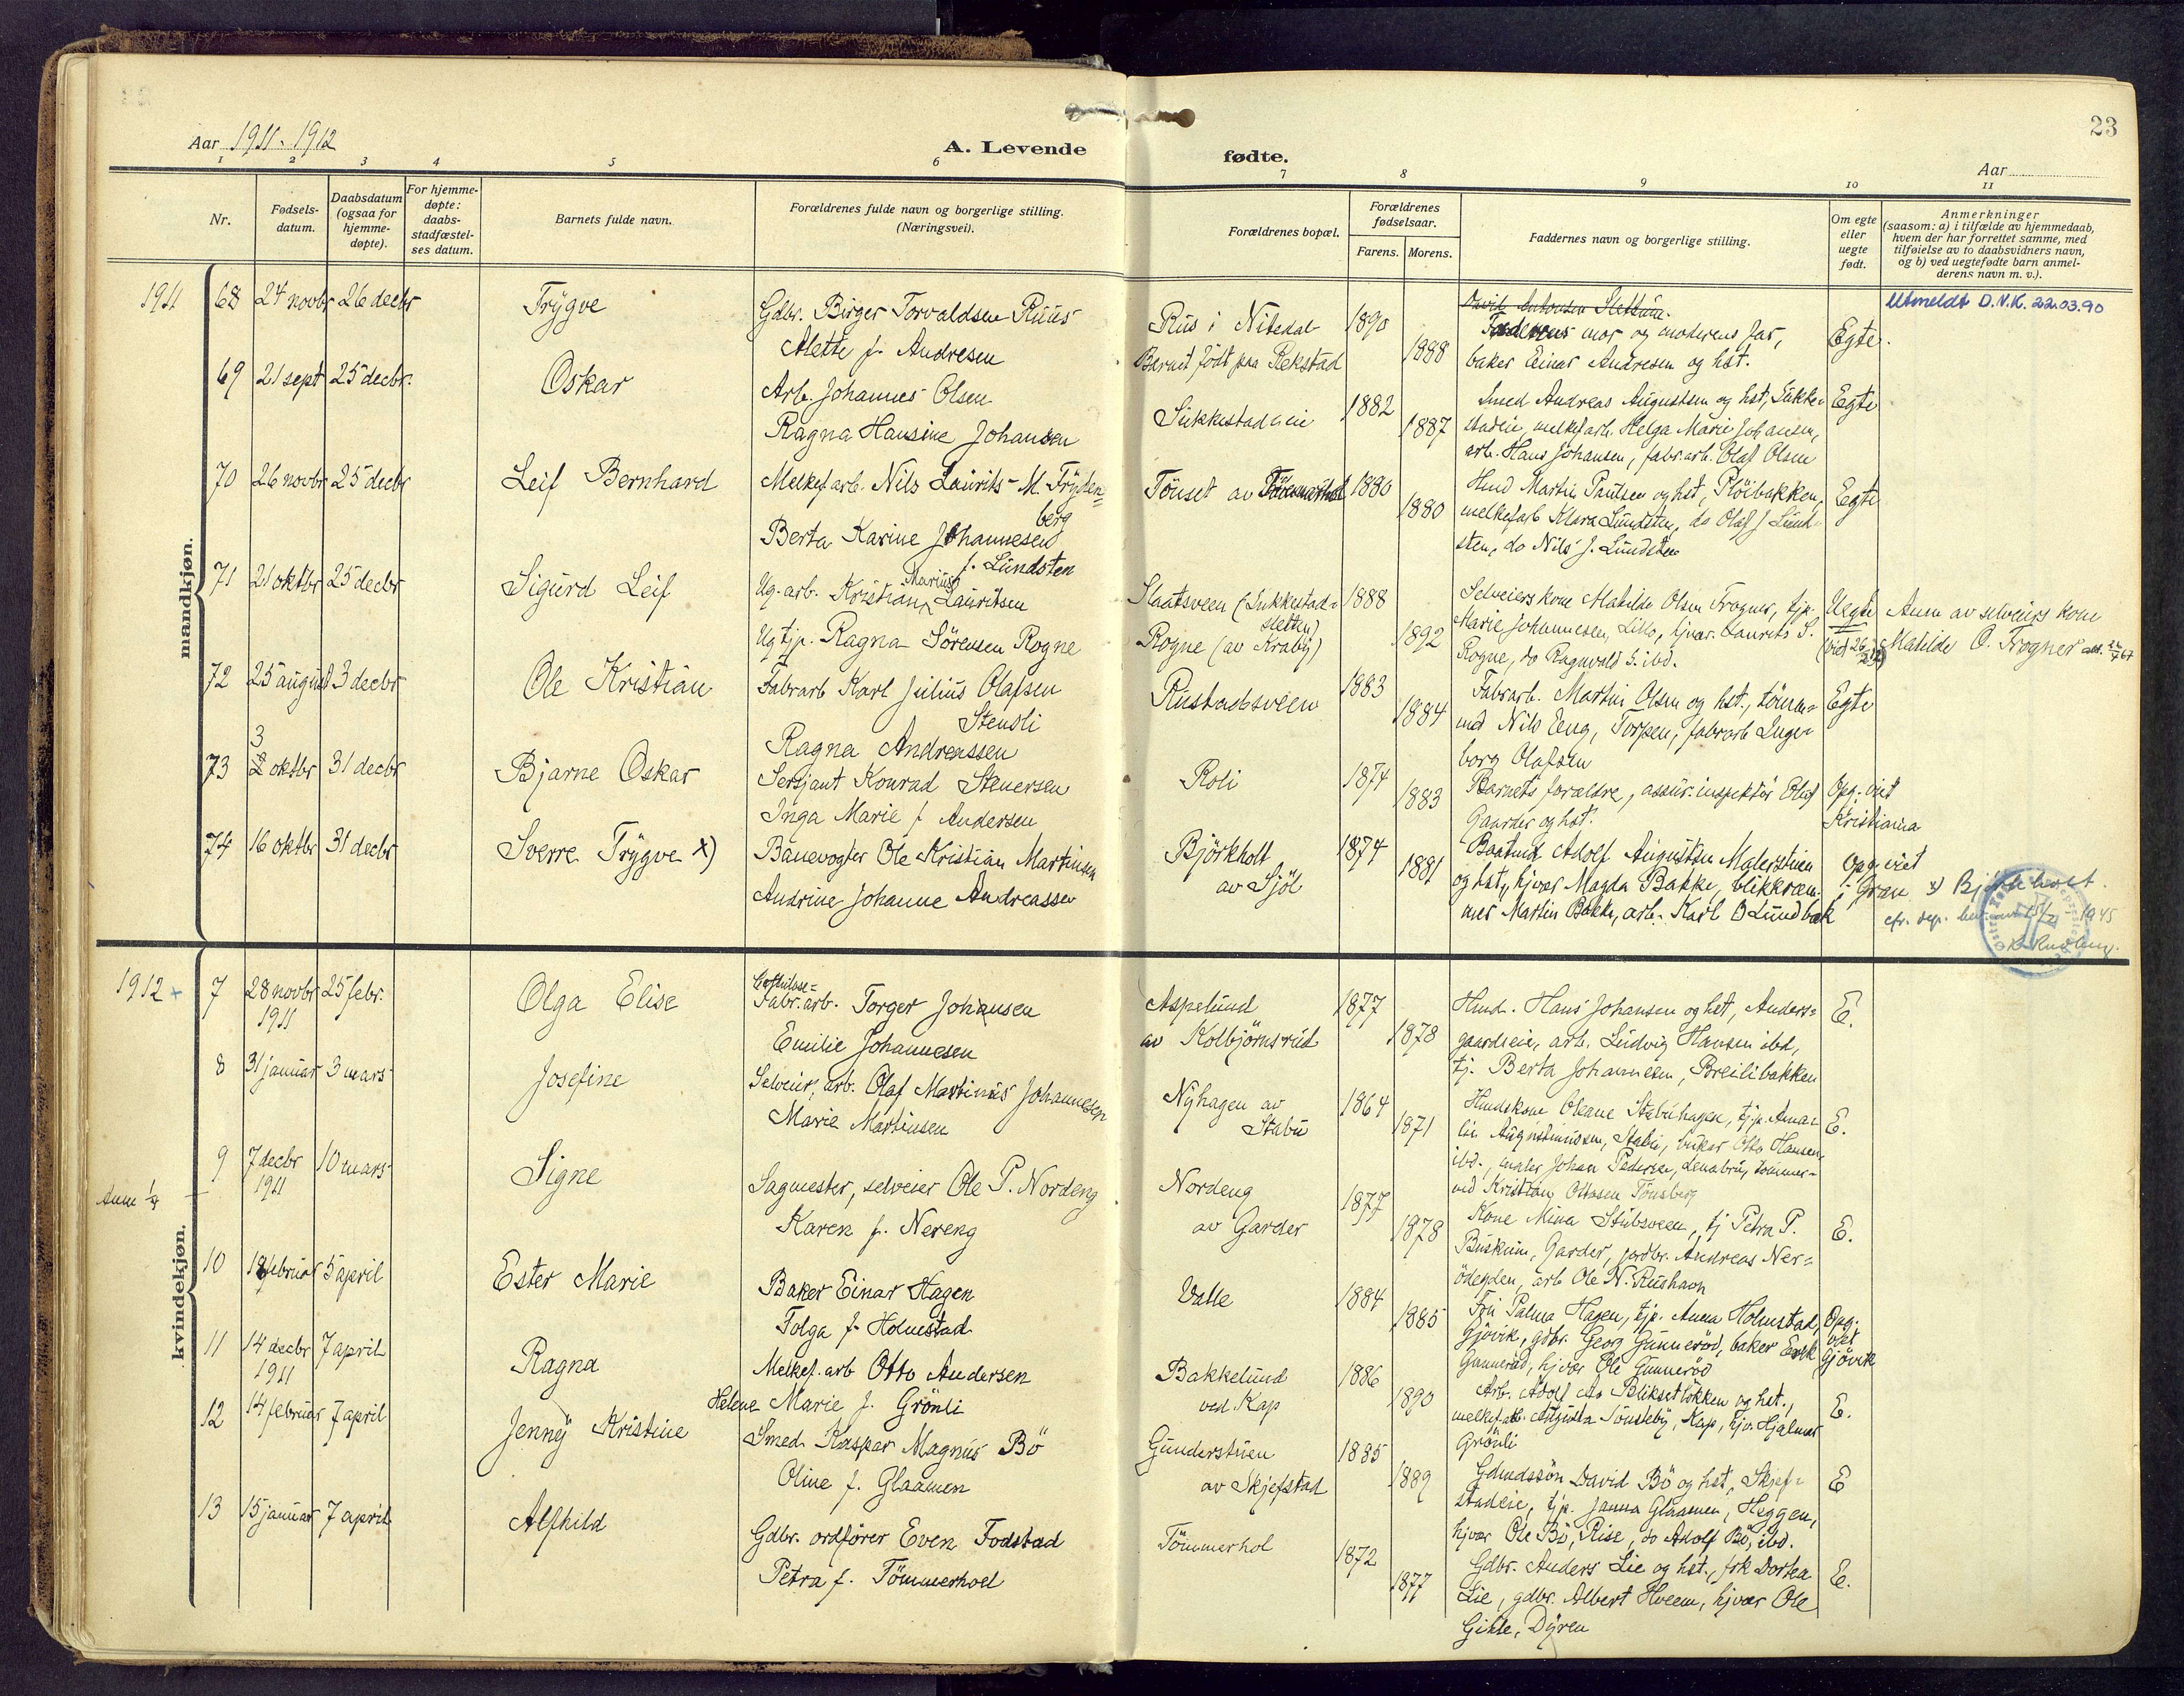 23
Aar 1911-1912
A. Levende
fødte.
Aar
1 2 3 4 5 6 7 8 9 10 11
Nr.
Fødsels-
datum.
Daabsdatum
(ogsaa for
hjemme-
døpte).
For hjemme-
døpte:
daabs-
stadfæstel-
ses datum.
Barnets fulde navn.
Forældrenes fulde navn og borgerlige stilling.
(Næringsvei).
Forældrenes bopæl.
Forældrenes
fødselsaar.
Farens. Morens.
Faddernes navn og borgerlige stilling.
Om egte
eller
uegte
født.
Anmerkninger
(saasom: a) i tilfælde av hjemmedaab,
hvem der har forrettet samme, med
tilføielse av to daabsvidners navn,
og b) ved uegtefødte barn anmel-
derens navn m. v.).
mandkjøn.
1911 68 24 novbr 26 decbr Trygve
Gdbr. Birger Torvaldsen Ruus
Mette f. Andresen
Rus i Nitedal
Barnet født paa Rekstad
1890 1888
Faderens mor og moderens far,
baker Einar Andresen og hst.
Egte.
Utmeldt D.N.K. 22.03.90
69 21 sept 25 decbr. Oskar
Arb. Johannes Olsen
Ragna Hansine Johansen
Sukkestadeie
1882 1887
Smed Andreas Augustsen og hst, Sukke-
stadeie, melkef.arb. Helga Marie Johansen,
arb. Hans Johansen, fabr.arb. Olaf Olsen
Egte
70 26 novbr 25 decbr Leif Bernhard
Melkef.arb. Nils Laurits M. Fryden=
berg
Berta Karine Johannesen
f. Lundsten
Tönset av
1880 1880
Hmd Martin Paulsen og hst, Plöibakken,
melkefarb Klara Lundsten, do Olaf J. Lund-
sten, do Nils J. Lundsten
Egte
71 21 oktbr 25 decbr Sigurd Leif
Ug. arb. Kristian Marius Lauritsen
Ug tjp. Ragna Sörensen Rogne
Slaatsveen (Sukkestad-
sletten)
Rogne (av Kraby)
1888 1892
Selveiers kone Matilde Olsen Frogner, tjp.
Marie Johannesen, Lillo, hjvær. Laurits S.
Rogne, do Ragnvald S. ibd.
Uegte
Anm av selveiers kone
Matilde O. Frogner
72 25 august 3 decbr Ole Kristian
Fabrarb Karl Julius Olafsen
Stensli
Ragna Andreassen
Rustadsveen
1883 1884
Fabrarb. Martin Olsen og hst., tömm=
md Nils Eeng, Torpen, fabrarb Inge-
borg Olafsen
Egte
73 3 oktbr 31 decbr Bjarne Oskar
Sersjant Konrad Stenersen
Inga Marie f Andersen
Roli
1874 1883
Barnets forældre, assur.inspektör Oluf
Gaarder og hst.
Opg. viet
Kristiania
74 16 oktbr 31 decbr Sverre Trygve x)
Banevogter Ole Kristian Martinsen
Andrine Johanne Andreassen
Björkholt
av Sjöl
1874 1881
Baatmd Adolf Augustsen Malerstuen
og hst, hjvær Magda Bakke, blikkræm-
mer Martin Bakke, arb. Karl O Lundbæk
Opg viet
i Gran x) Björkholt.
1945
kvindekjøn.
1912 + 7 28 novbr 1911 25 febr. Olga Elise
Fabr.arb. Torger Johansen
Emilie Johannesen
Aspelund
av Kolbjörnsrud
1877 1878
Hmd. Hans Johansen og hst, Anders=
gaardseie, arb. Ludvig Hansen ibd,
tj. Berta Johannesen, Breilibakken
E.
8 31 januar 3 mars Josefine
Selveier, arb. Olaf Martinius Johannesen
Marie Martinsen
Nyhagen av
Stabu
1864 1871
Hmdskone Oleane Stabuhagen, tjp. Ama-
lie Augustinussen, Stabu, bruker Otto Hansen
ibd., maler Johan Pedersen, Lenabru, tømmer-
md Kristian Ottosen Tönsberg
E.
Anm 1/4 9 7 decbr 1911 10 mars Signe
Sagmester, selveier Ole P. Nordeng
Karen f. Nereng
Nordeng
av Garder
1877 1878
Kone Mina Stubsveen, tj Petra P.
Buskum, Garder, jordbr. Andreas Ner=
ödegden, arb Ole N. Rushavn
E.
10 18 februar 5 april Ester Marie
Baker Einar Hagen
Tolga f. Holmestad
Valle
1884 1885
Frk Palma Hagen, tjp. Anna Holmstad,
Gjövik, gdbr. Georg Gunneröd, baker Erik
Gunneröd, hjvær Ole Gunneröd
Opg.
viet
Gjövik
11 14 decbr 1911 7 april Ragna
Melkef.arb Otto Andersen
Helene Marie f. Grönli
Bakkelund
ved Kap
1886 1890
Arb. Adolf As Bliksetlökken og hst.,
melkefarb. Augusta Sönsteby, Kap, hjv. Hjalmar
Grönli
E.
12 14 februar 7 april Jenny Kristine
Smed Kaspar Magnus Bö
Oline f. Glaamen
Gunderstuen
av Skjefstad
1885 1889
Gdmdssön David Bö og hst, Skjef-
stadeie, tjp. Janna Glaamen, Heggen,
hjvær Ole Bö, Rise, do Adolf Bö, ibd.
E
13 15 januar 7 april Alfhild
Gdbr. ordförer Even Fodstad
Petra f. Tömmerhoel
Tömmerhol
1872 1877
Gdbr. Anders Lie og hst., frk Dortea
Lie, gdbr. Albert Hveem, hjvær Ole
Gihle, Dyren
E.